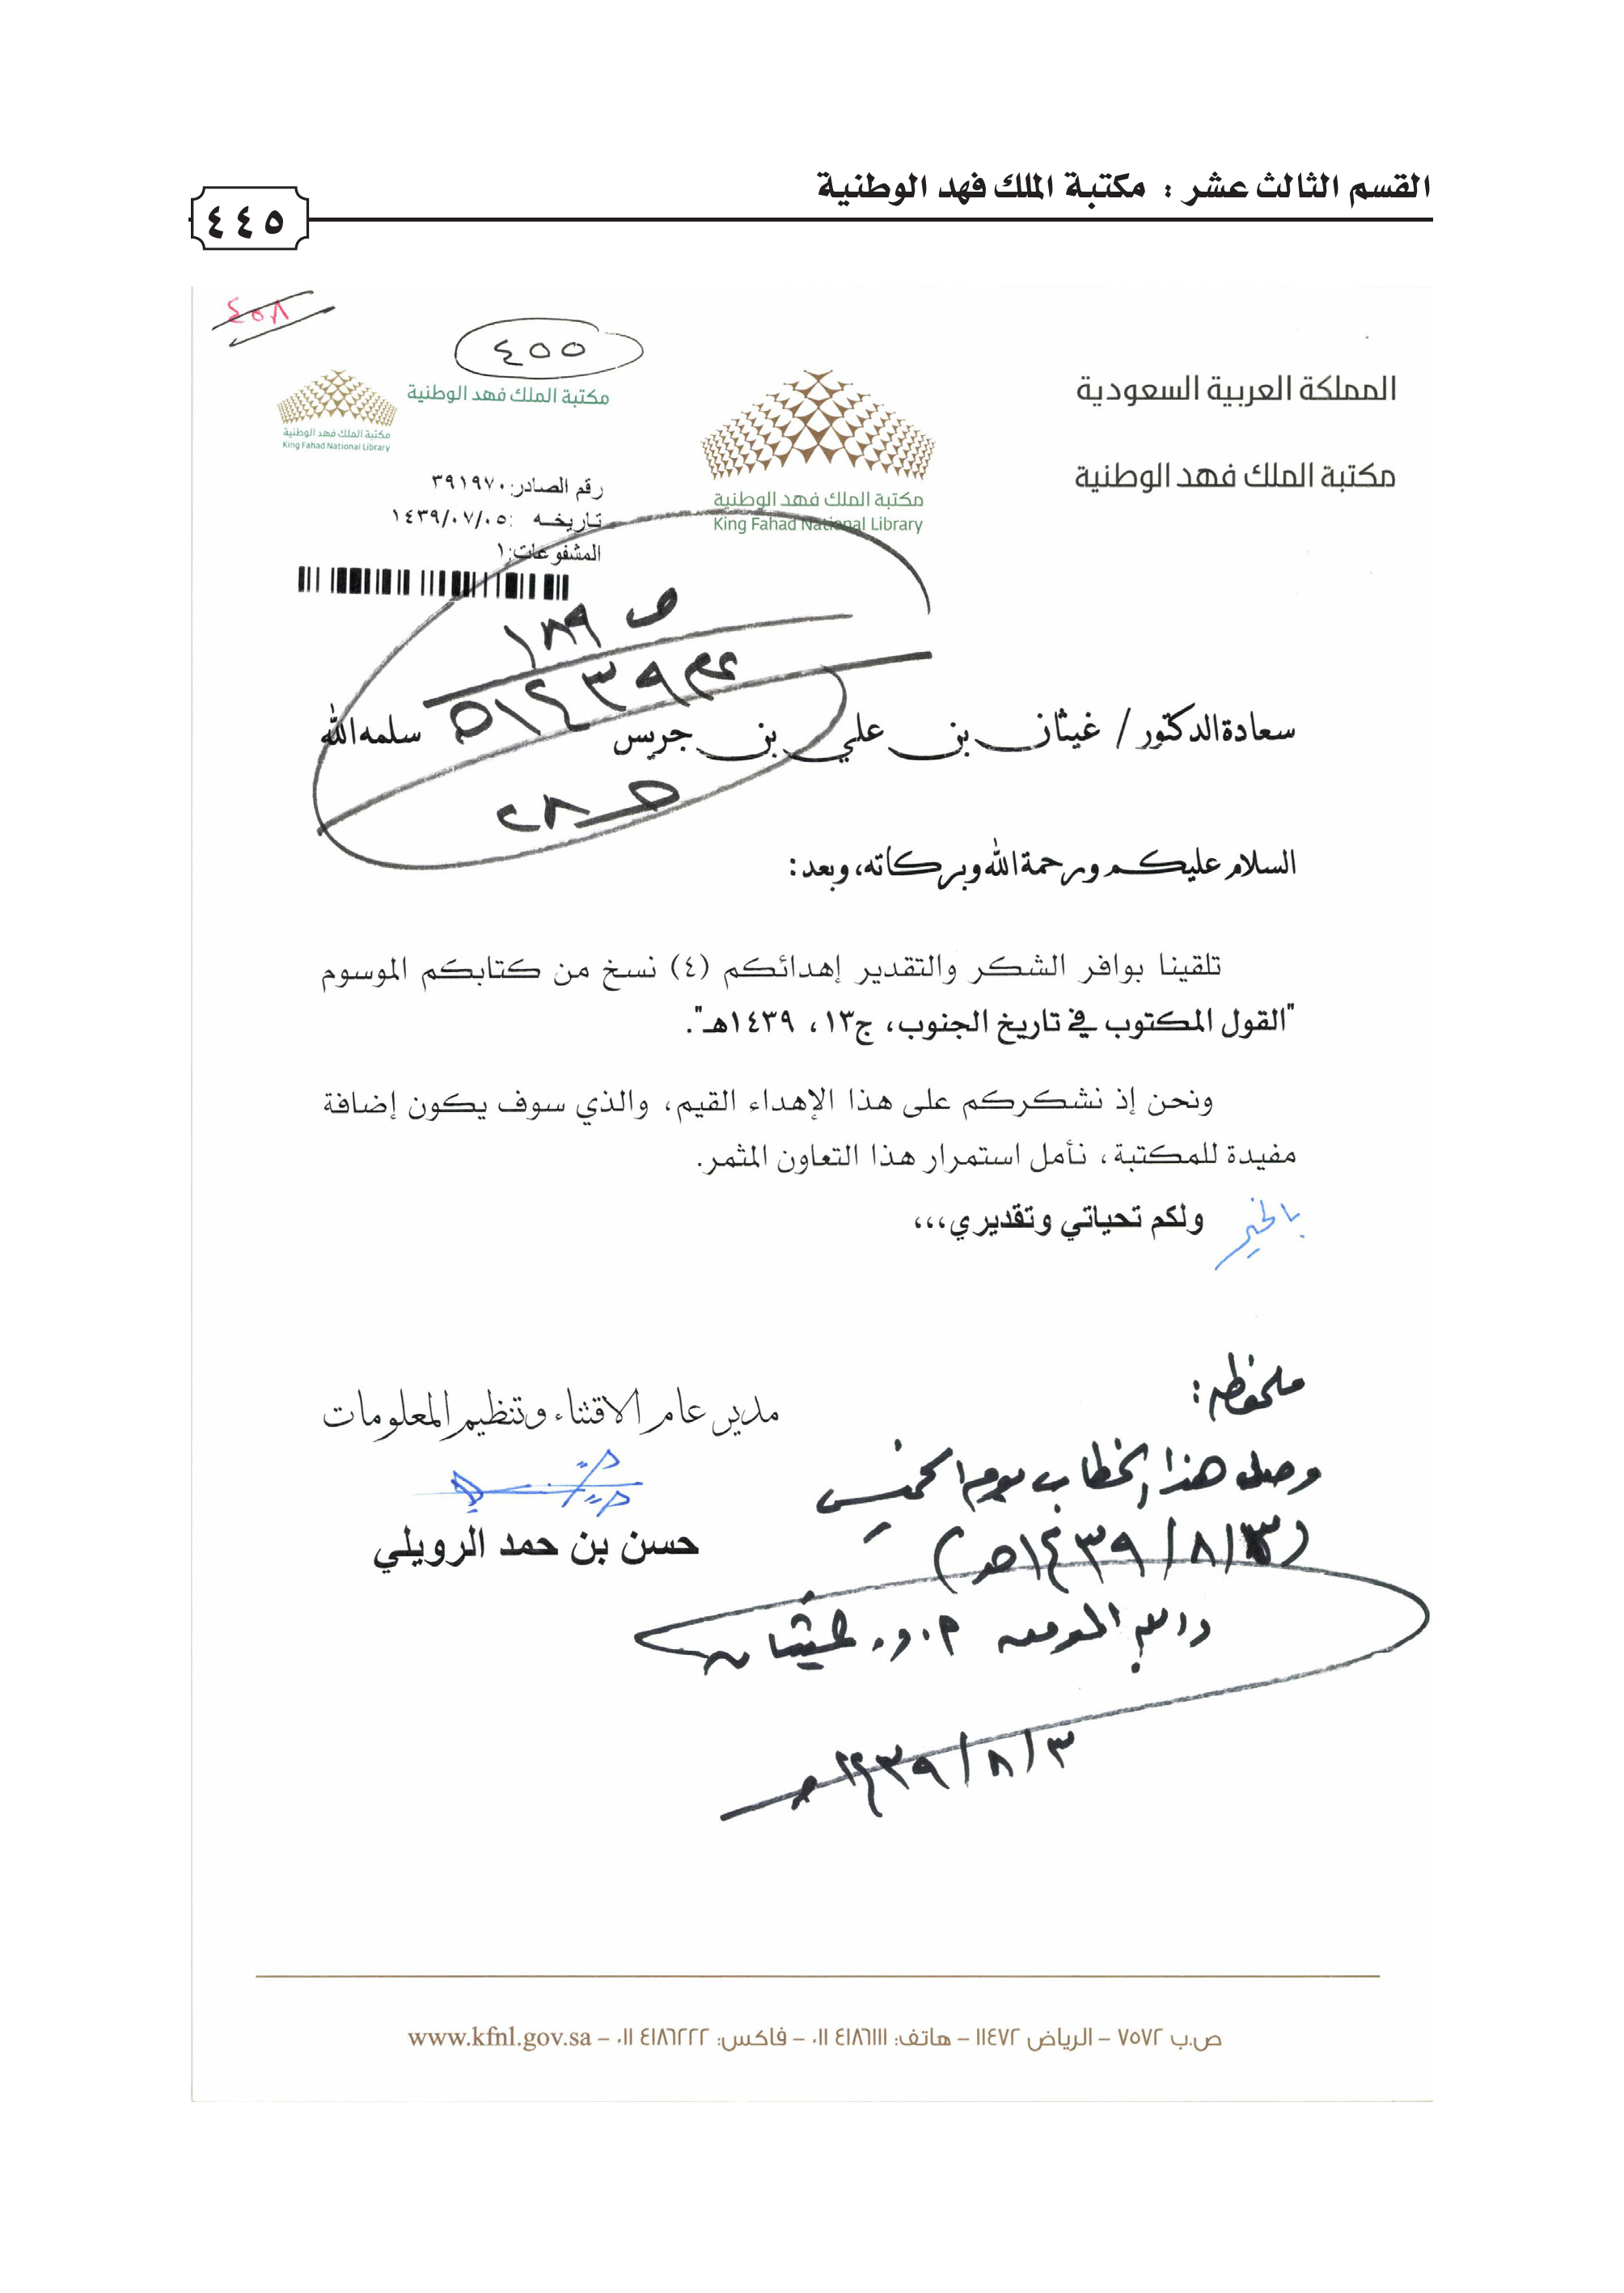 القسم الثالث عشر : مكتبة الملك فهد الوطنية
٤٤٥
٤٥٨
٤٥٥
المملكة العربية السعودية
مكتبة الملك فهد الوطنية
مكتبة الملك فهد الوطنية
King Fahad National Library
مكتبة الملك فهد الوطنية
مكتبة الملك فهد الوطنية
King Fahad National Library
رقم الصادر: ٣٩١٩٧٠
تاريخه : ١٤٣٩/٠٧/٠٥
المشفوعات: ١
ص ١٨٩
١٤٣٩
سعادة الدكتور / غيثان بن علي بن جريس سلمه الله
السلام عليكم ورحمة الله وبركاته، وبعد:
تلقينا بوافر الشكر والتقدير إهدائكم (٤) نسخ من كتابكم الموسوم
"القول المكتوب في تاريخ الجنوب، ج١٣، ١٤٣٩هـ".
ونحن إذ نشكركم على هذا الإهداء القيم، والذي سوف يكون إضافة
مفيدة للمكتبة، نأمل استمرار هذا التعاون المثمر.
بالخير
ولكم تحياتي وتقديري،،،
مدير عام الاقتناء وتنظيم المعلومات
حسن بن حمد الرويلي
ملحوظه :
وصل هذا الخطاب يوم الخميس
(٣/٨/١٤٣٩هـ)
غيثان
٣/٨/١٤٣٩هـ
ص.ب ٧٥٧٢ – الرياض ١١٤٧٢ – هاتف: ٤١٨٦١١١ ٠١١ – فاكس: ٤١٨٦٢٢٢ ٠١١ – www.kfnl.gov.sa